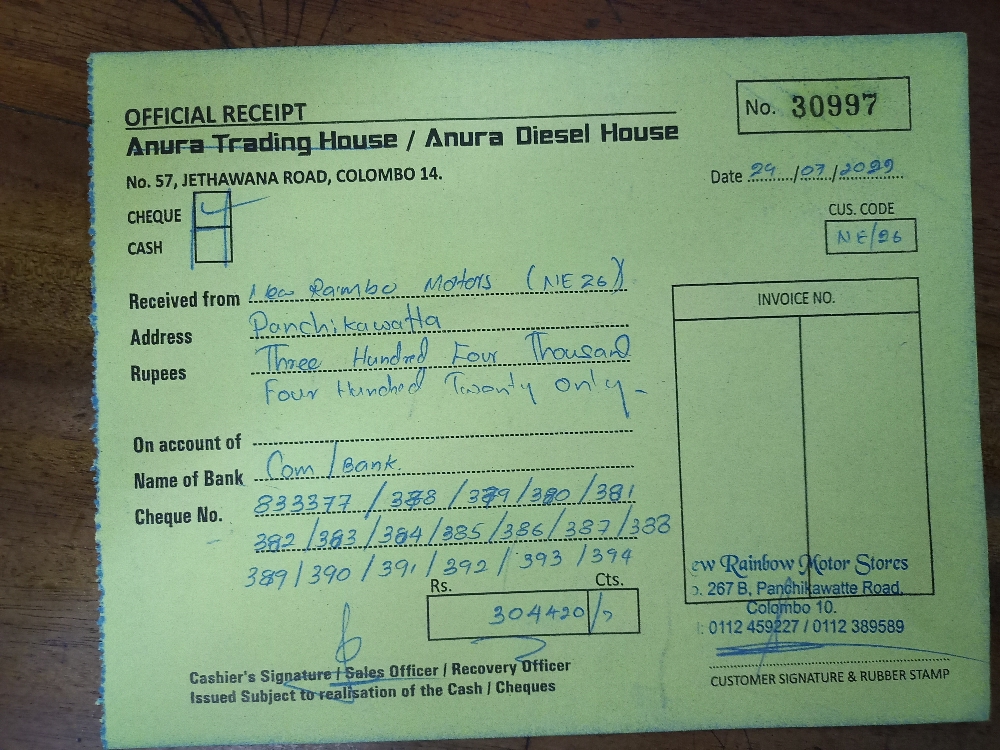 OFFICIAL RECEIPT
No. 30997
Anura Trading House / Anura Diesel House
No. 57, JETHAWANA ROAD, COLOMBO 14.
Date 29/07/2029
CHEQUE
CUS. CODE
CASH
NE/26
Received from New Raimbo Motors (NE 26)
INVOICE NO.
Address Panchikawatta
Rupees Three Hundred Four Thousand
Four Hundred Twenty only -
On account of
Name of Bank Com/Bank.
Cheque No. 833377 / 378 / 379 / 380 / 381
382 / 383 / 384 / 385 / 386 / 387 / 388
389 / 390 / 391 / 392 / 393 / 394
ew Rainbow Motor Stores
. 267 B, Panchikawatte Road,
Colombo 10.
: 0112 459227 / 0112 389589
Rs. Cts.
304420/-
Cashier's Signature / Sales Officer / Recovery Officer
Issued Subject to realisation of the Cash / Cheques
CUSTOMER SIGNATURE & RUBBER STAMP